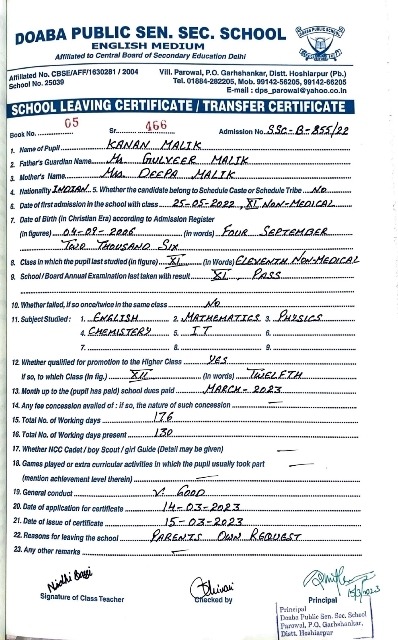 DOABA PUBLIC SEN. SEC. SCHOOL
ENGLISH MEDIUM
Affiliated to Central Board of Secondary Education Delhi
Affiliated No. CBSE/AFF/1630281 / 2004
School No. 25039
Vill. Parowal, P.O. Garhshankar, Distt. Hoshiarpur (Pb.)
Tel. 01884-282205, Mob. 99142-56205, 99142-66205
E-mail : dps_parowal@yahoo.co.in
SCHOOL LEAVING CERTIFICATE / TRANSFER CERTIFICATE
Book No. 05 Sr. 466 Admission No. SSC-B-855/22
1. Name of Pupil KANAN MALIK
2. Father's Guardian Name Mr. GULVEER MALIK
3. Mother's Name Mrs. DEEPA MALIK
4. Nationality INDIAN 5. Whether the candidate belong to Schedule Caste or Schedule Tribe NO
6. Date of first admission in the school with class 25-05-2022, XI NON-MEDICAL
7. Date of Birth (in Christian Era) according to Admission Register
(in figures) 04-09-2006 (in words) FOUR SEPTEMBER
TWO THOUSAND SIX
8. Class in which the pupil last studied (in figure) XI (in Words) ELEVENTH NON-MEDICAL
9. School / Board Annual Examination last taken with result XI, PASS
10. Whether failed, if so once/twice in the same class NO
11. Subject Studied : 1. ENGLISH 2. MATHEMATICS 3. PHYSICS
4. CHEMISTERY 5. IT 6.
7. 8. 9.
12. Whether qualified for promotion to the Higher Class YES
If so, to which Class (In fig.) XII (in words) TWELFTH
13. Month up to the (pupil has paid) school dues paid MARCH-2023
14. Any fee concession availed of : if so, the nature of such concession —
15. Total No. of Working days 176
16. Total No. of Working days present 130
17. Whether NCC Cadet / boy Scout / girl Guide (Detail may be given) —
18. Games played or extra curricular activities in which the pupil usually took part —
(mention achievement level therein) —
19. General conduct V. GOOD
20. Date of application for certificate 14-03-2023
21. Date of issue of certificate 15-03-2023
22. Reasons for leaving the school PARENTS OWN REQUEST
23. Any other remarks —
15/3/2023
Signature of Class Teacher Checked by Principal
Principal
Doaba Public Sen. Sec. School
Parowal, P.O. Garhshankar,
Distt. Hoshiarpur